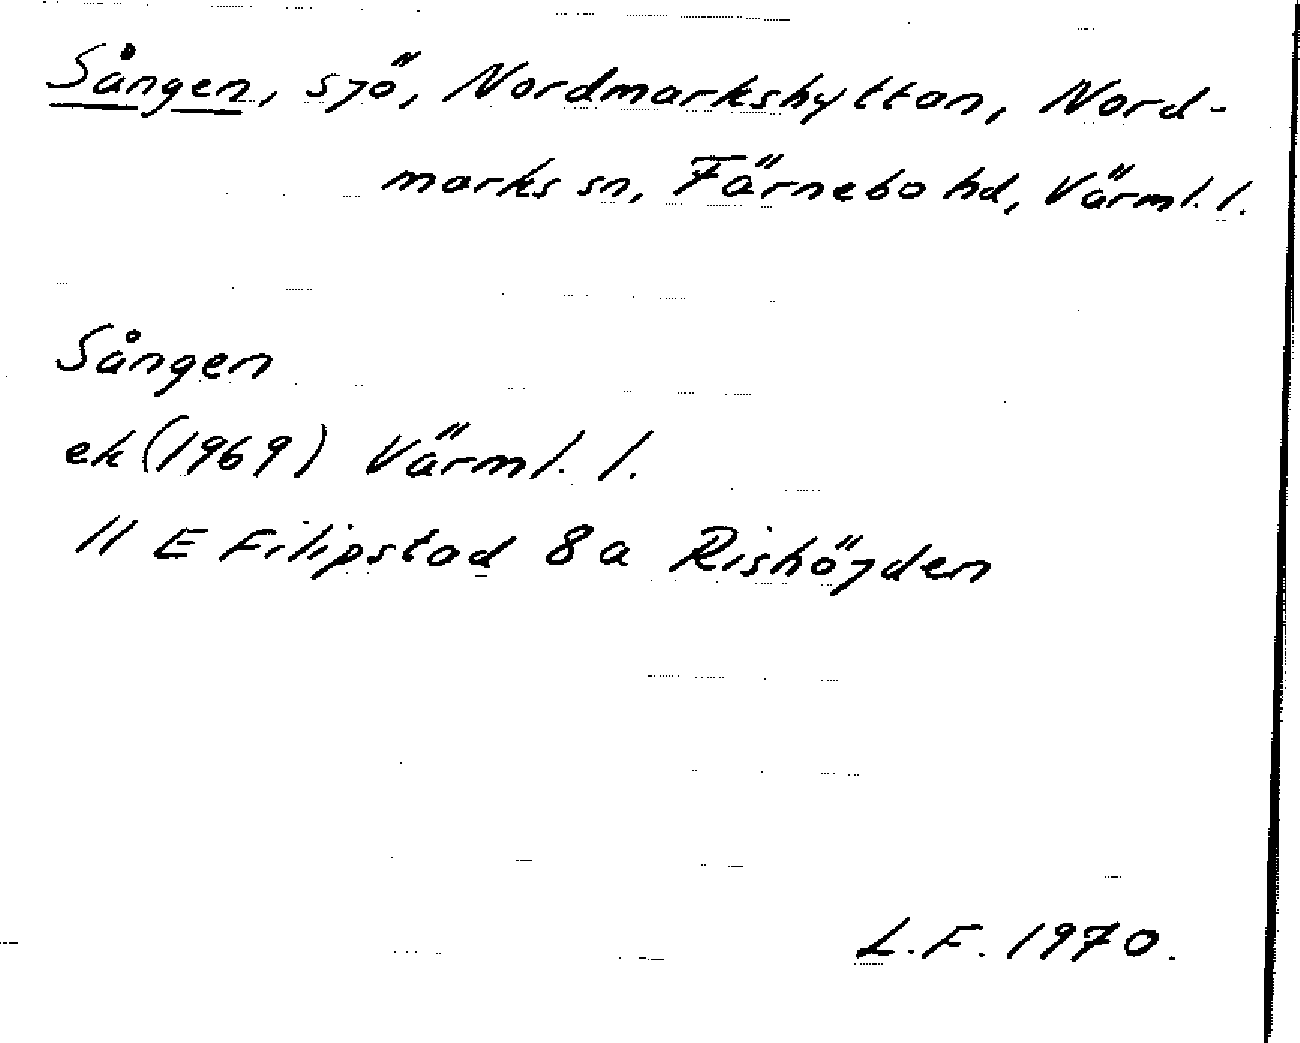 Sången, sjö, Nordmarkshyttan, Nord-
marks sn, Färnebo hd, Värml. l.
Sången
ek (1969) Värml. l.
11 E Filipstad 8 a Rishöjden
L.F. 1970.